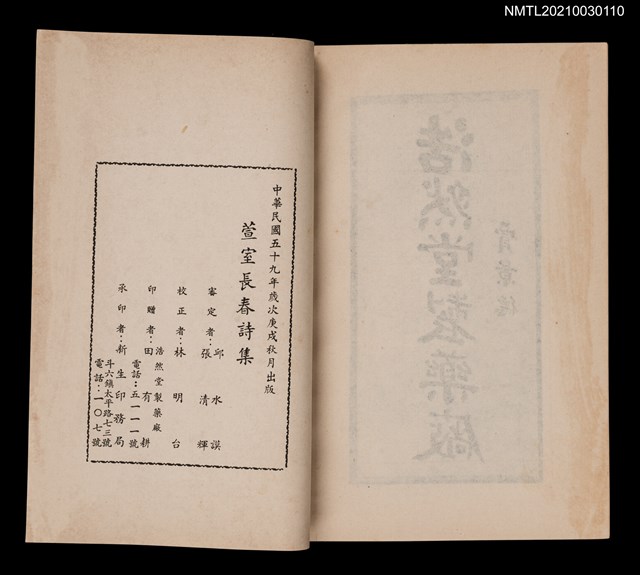 NMTL20210030110
中華民國五十九年歲次庚戌秋月出版
萱室長春詩集
審定者：邱水謨
張清輝
校正者：林明台
浩然堂製藥廠
印贈者：田有耕
電話：五一一一號
承印者：新生印務局
斗六鎮太平路七三號
電話：一〇七號
浩然堂製藥廠